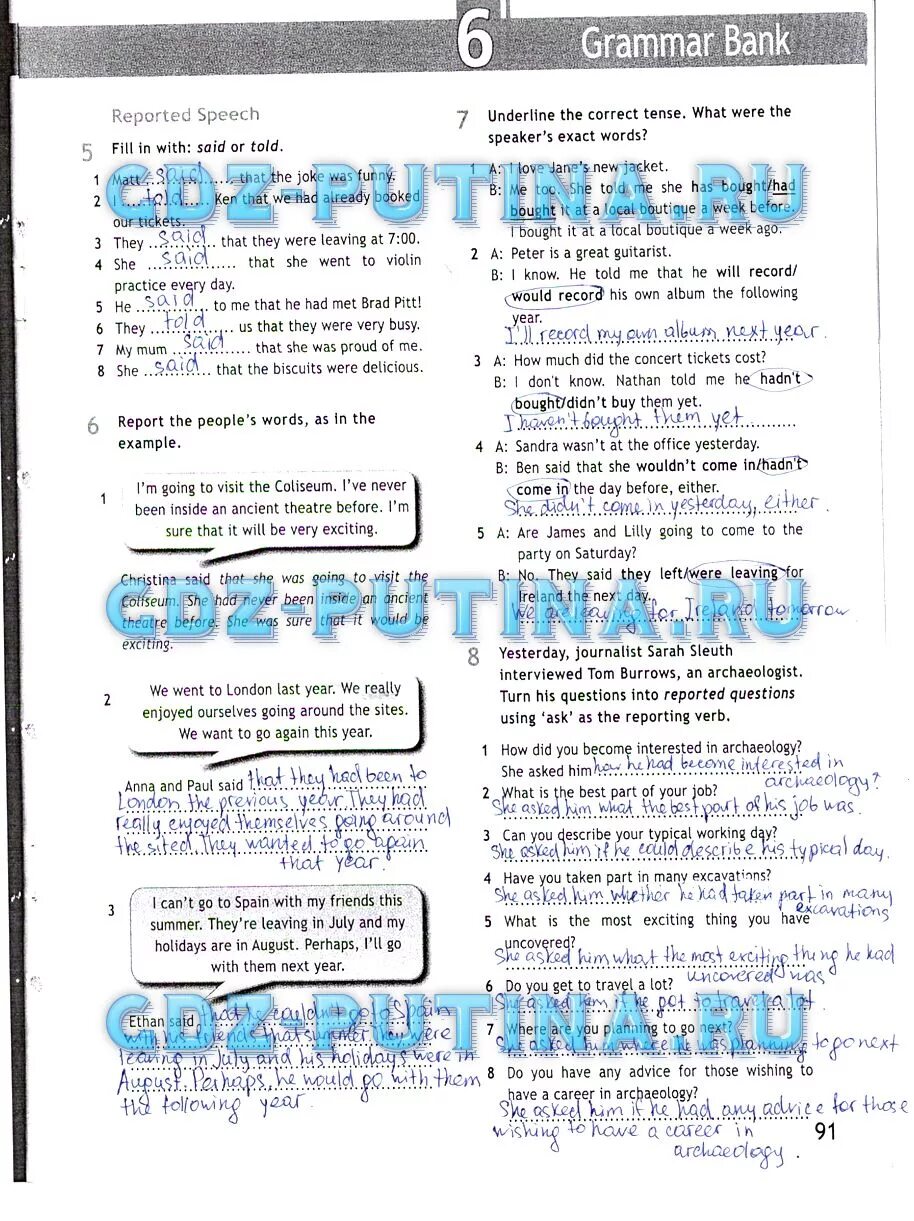 6 Grammar Bank
Reported Speech
5 Fill in with: said or told.
1 Matt said that the joke was funny.
2 I told Ken that we had already booked
our tickets.
3 They said that they were leaving at 7:00.
4 She said that she went to violin
practice every day.
5 He said to me that he had met Brad Pitt!
6 They told us that they were very busy.
7 My mum said that she was proud of me.
8 She said that the biscuits were delicious.
6 Report the people's words, as in the
example.
1 I'm going to visit the Coliseum. I've never
been inside an ancient theatre before. I'm
sure that it will be very exciting.
Christina said that she was going to visit the
Coliseum. She had never been inside an ancient
theatre before. She was sure that it would be
exciting.
2 We went to London last year. We really
enjoyed ourselves going around the sites.
We want to go again this year.
Anna and Paul said that they had been to
London the previous year. They had
really enjoyed themselves going around
the sited. They wanted to go again
that year.
3 I can't go to Spain with my friends this
summer. They're leaving in July and my
holidays are in August. Perhaps, I'll go
with them next year.
Ethan said that he couldn't go to Spain
with his friends that summer. They were
leaving in July and his holidays were in
August. Perhaps, he would go with them
the following year.
7 Underline the correct tense. What were the
speaker's exact words?
1 A: I love Jane's new jacket.
B: Me too. She told me she has bought/had
bought it at a local boutique a week before.
I bought it at a local boutique a week ago.
2 A: Peter is a great guitarist.
B: I know. He told me that he will record/
would record his own album the following
year.
I'll record my own album next year.
3 A: How much did the concert tickets cost?
B: I don't know. Nathan told me he hadn't
bought/didn't buy them yet.
I haven't bought them yet
4 A: Sandra wasn't at the office yesterday.
B: Ben said that she wouldn't come in/hadn't
come in the day before, either.
She didn't come in yesterday, either.
5 A: Are James and Lilly going to come to the
party on Saturday?
B: No. They said they left/were leaving for
Ireland the next day.
We are leaving for Ireland tomorrow
8 Yesterday, journalist Sarah Sleuth
interviewed Tom Burrows, an archaeologist.
Turn his questions into reported questions
using 'ask' as the reporting verb.
1 How did you become interested in archaeology?
She asked him how he had become interested in
archaeology?
2 What is the best part of your job?
She asked him what the best part of his job was.
3 Can you describe your typical working day?
She asked him if he could describe his typical day.
4 Have you taken part in many excavations?
She asked him whether he had taken part in many
excavations
5 What is the most exciting thing you have
uncovered?
She asked him what the most exciting thing he had
uncovered was
6 Do you get to travel a lot?
She asked him if he got to travel a lot
7 Where are you planning to go next?
She asked him where he was planning to go next
8 Do you have any advice for those wishing to
have a career in archaeology?
She asked him if he had any advice for those
wishing to have a career in
archaeology.
91
GDZ-PUTINA.RU
GDZ-PUTINA.RU
GDZ-PUTINA.RU